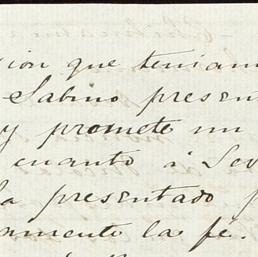 cion que teniam
Sabino present
y promete un
cuanto á Sev
a presentado p
amento la fé.